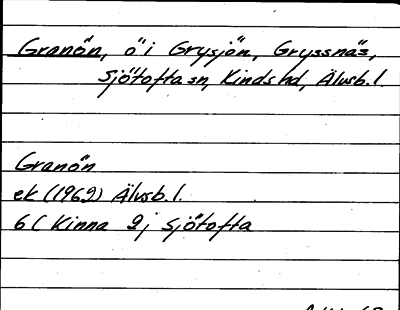 Granön, ö i Grysjön, Gryssnäs,
Sjötofta sn, Kinds hd, Älvsb. l.
Granön
ek (1969) Älvsb. l.
6 C Kinna 9 j Sjötofta